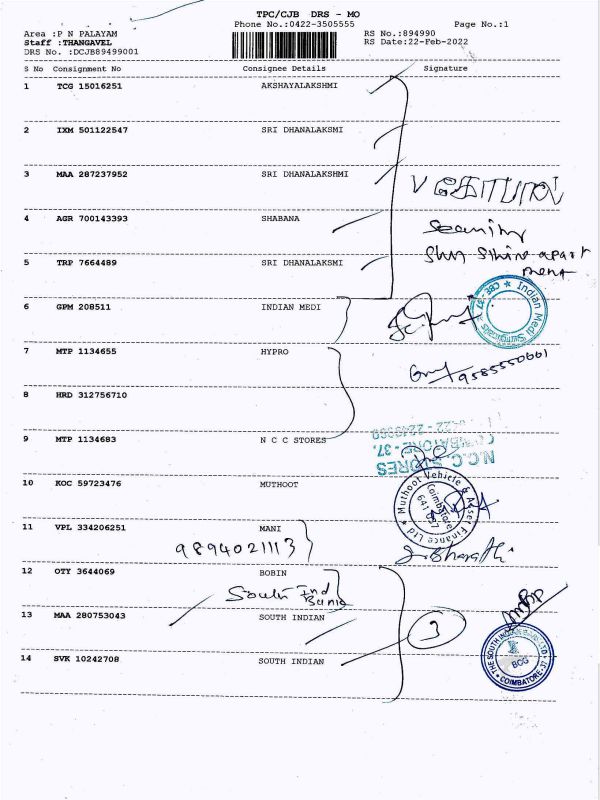 TPC/CJB DRS - MO
Phone No.:0422-3505555 Page No.:1
Area :P N PALAYAM RS No.:894990
Staff :THANGAVEL RS Date:22-Feb-2022
DRS No. :DCJB89499001
S No Consignment No Consignee Details Signature
1 TCG 15016251 AKSHAYALAKSHMI
2 IXM 501122547 SRI DHANALAKSMI
3 MAA 287237952 SRI DHANALAKSHMI
4 AGR 700143393 SHABANA
Security
5 TRP 7664489 SRI DHANALAKSMI
apart
ment
6 GPM 208511 INDIAN MEDI
Indian Medi Surgicals ★ CBE-37 ★
7 MTP 1134655 HYPRO
9585550661
8 HRD 312756710
9 MTP 1134683 N C C STORES
N.C.C. STORES
COIMBATORE - 37.
10 KOC 59723476 MUTHOOT
Muthoot Vehicle & Asset Finance Ltd ★
Coimbatore
11 VPL 334206251 MANI
9894021113
S. Bharathi
12 OTY 3644069 BOBIN
South Ind
Bank
13 MAA 280753043 SOUTH INDIAN
3
14 SVK 10242708 SOUTH INDIAN
THE SOUTH INDIAN BANK LTD
BCG
COIMBATORE